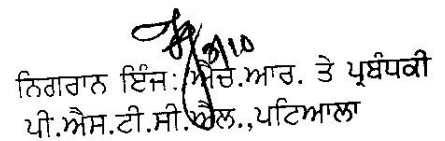 3/10
ਨਿਗਰਾਨ ਇੰਜ: ਐਚ.ਆਰ. ਤੇ ਪ੍ਰਬੰਧਕੀ
ਪੀ.ਐਸ.ਟੀ.ਸੀ.ਐਲ.,ਪਟਿਆਲਾ